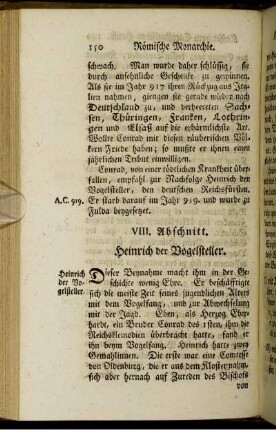 150 Römische Monarchie.
schwach. Man wurde daher schlüssig, sie
durch ansehnliche Geschenke zu gewinnen.
Als sie im Jahr 917 ihren Rückzug aus Ita-
lien nahmen, giengen sie gerade wieder nach
Deutschland zu, und verheereten Sach-
sen, Thüringen, Franken, Lothrin-
gen und Elsaß auf die erbärmlichste Art.
Wollte Conrad mit diesen räuberischen Völ-
kern Friede haben; so mußte er ihnen einen
jährlichen Tribut einwilligen.
Conrad, von einer tödtlichen Krankheit über-
fallen, empfahl zur Nachfolge Heinrich den
Vogelsteller, den deutschen Reichsfürsten.
A.C. 919. Er starb darauf im Jahr 919. und wurde zu
Fulda beygesetzet.
VIII. Abschnitt.
Heinrich der Vogelsteller.
Heinrich der Vo-
gelsteller.
Dieser Beyname macht ihm in der Ge-
schichte wenig Ehre. Er beschäfftigte
sich die meiste Zeit seines jugendlichen Alters
mit dem Vogelfang, und zur Abwechselung
mit der Jagd. Eben, als Herzog Eber-
hardt, ein Bruder Conrad des 1sten, ihm die
Reichskleinodien überbracht hatte, fand er
ihn beym Vogelfang. Heinrich hatte zwey
Gemahlinnen. Die erste war eine Comtesse
von Oldenburg, die er aus dem Kloster nahm,
sich aber hernach auf Zureden des Bischofs
von